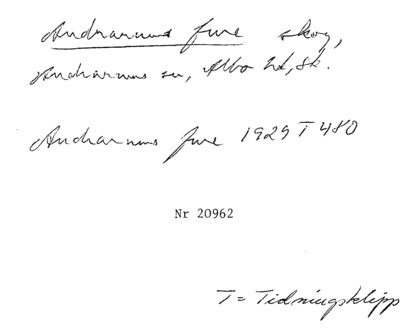 Andrarums fure skog,
Andrarums sn, Albo hd, Sk.
Andrarums fure 1929 T 480
Nr 20962
T = Tidningsklipp